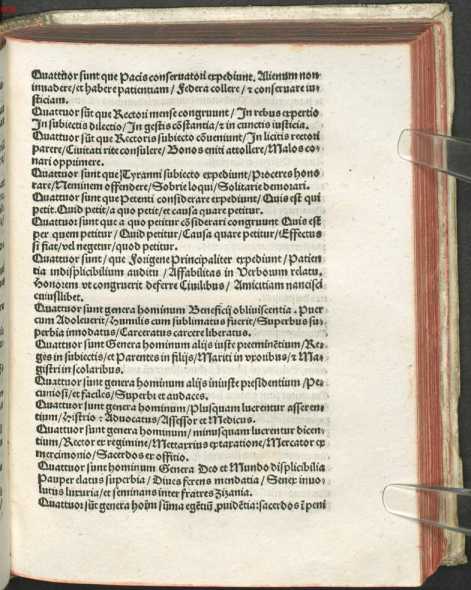 Quattuor sunt que Pacis conseruatori expediunt. Alienum non
inuadere/et habere patientiam/ Federa collere/ ⁊ conseruare iu⸗
sticiam.
Quattuor sūt que Rectori mense congruunt/ In rebus expertio
In subiectis dilectio/ In gestis cōstantia/⁊ in cunctis iusticia.
Quattuor sūt que Rectoris subiecto cōueniunt/In licitis rectori
parere/Ciuitati rite consulere/ Bonos eniti attollere/Malos co⸗
nari opprimere.
Quattuor sunt que Tyranni subiecto expediunt/Proceres hono
rare/Neminem offendere/Sobrie loqui/Solitarie demorari.
Quattuor sunt que Petenti considerare expediunt/Quis est qui
petit.Quid petit/a quo petit/et causa quare petitur.
Quattuor sunt que a quo petitur cōsiderari congruunt Quis est
per quem petitur/Quid petitur/Causa quare petitur/Effectus
si fiat/vel negetur/quod petitur.
Quattuor sunt/que Forigene Principaliter expediunt/Patien
tia indisplicibilium auditu/Affabilitas in Verborum relatu.
Honorem vt congruerit deferre Ciuilibus/ Amicitiam nancisci
cuiuslibet.
Quattuor sunt genera hominum Beneficij obliuiscentia. Puer
cum Adoleuerit/Humilis cum sublimatus fuerit/Superbus su⸗
perbia innodatus/Carceratus carcere liberatus.
Quattuor sunt Genera hominum alijs iuste preeminētium/Re⸗
ges in subiectis/et Parentes in filijs/Mariti in vxoribus/⁊ Ma⸗
gistri in scolaribus.
Quattuor sunt genera hominum alijs iniuste presidentium/Pe⸗
cuniosi/et faciles/Superbi et audaces.
Quattuor sunt genera hominum/Plusquam lucrentur asseren⸗
tium/Histrio ⁊ Aduocatus/Assessor et Medicus.
Quattuor sunt genera hominum/minusquam lucrentur dicen⸗
tium/Rector ex regimine/Mettarrius ex taxatione/Mercator ex
mercimonio/Sacerdos ex offitio.
Quattuor sunt hominum Genera Deo et Mundo displicibilia
Pauper elatus superbia/Diues ferens mendatia/Senex inuo⸗
lutus luxuria/et seminans inter fratres Zizania.
Quattuor sūt genera hoīm sūma egētiū ꝓuidētia:sacerdos ī peni